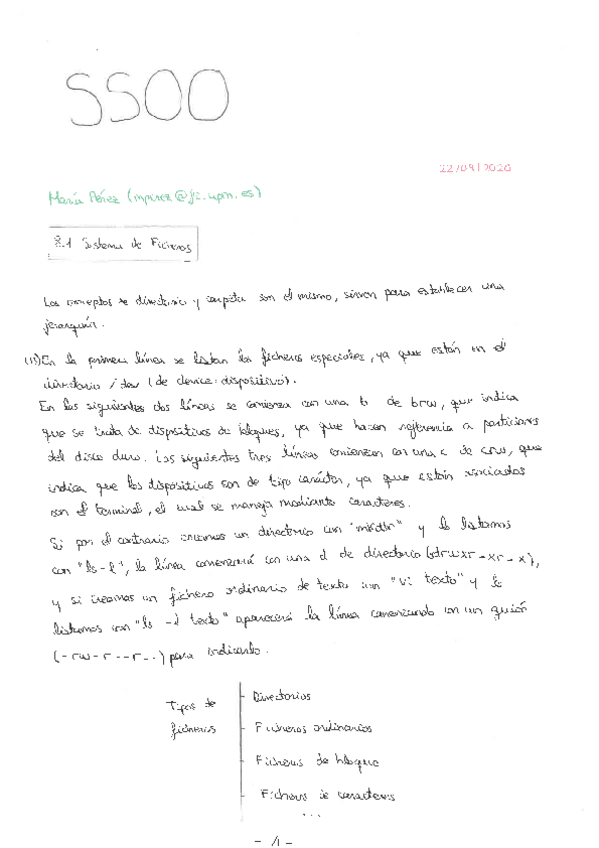 SSOO
22/09/2020
María Pérez (mperez@fi.upm.es)
8.1 Sistema de Ficheros
Los conceptos de directorio y carpeta son el mismo, sirven para establecer una
jerarquía.
(15) En la primera línea se listan los ficheros especiales, ya que están en el
directorio /dev (de device: dispositivo).
En las siguientes dos líneas se comienza con una b de brw, que indica
que se trata de dispositivos de bloques, ya que hacen referencia a particiones
del disco duro. Las siguientes tres líneas comienzan con una c de crw, que
indica que los dispositivos son de tipo carácter, ya que están asociados
con el terminal, el cual se maneja mediante caracteres.
Si por el contrario creamos un directorio con "mkdir" y lo listamos
con "ls -l", la línea comenzará con una d de directorio (drwxr-xr-x),
y si creamos un fichero ordinario de texto con "vi texto" y lo
listamos con "ls -l texto" aparecerá la línea comenzando con un guión
(-rw-r--r--) para indicarlo.
Tipos de
ficheros
Directorios
Ficheros ordinarios
Ficheros de bloque
Ficheros de caracteres
...
- 1 -